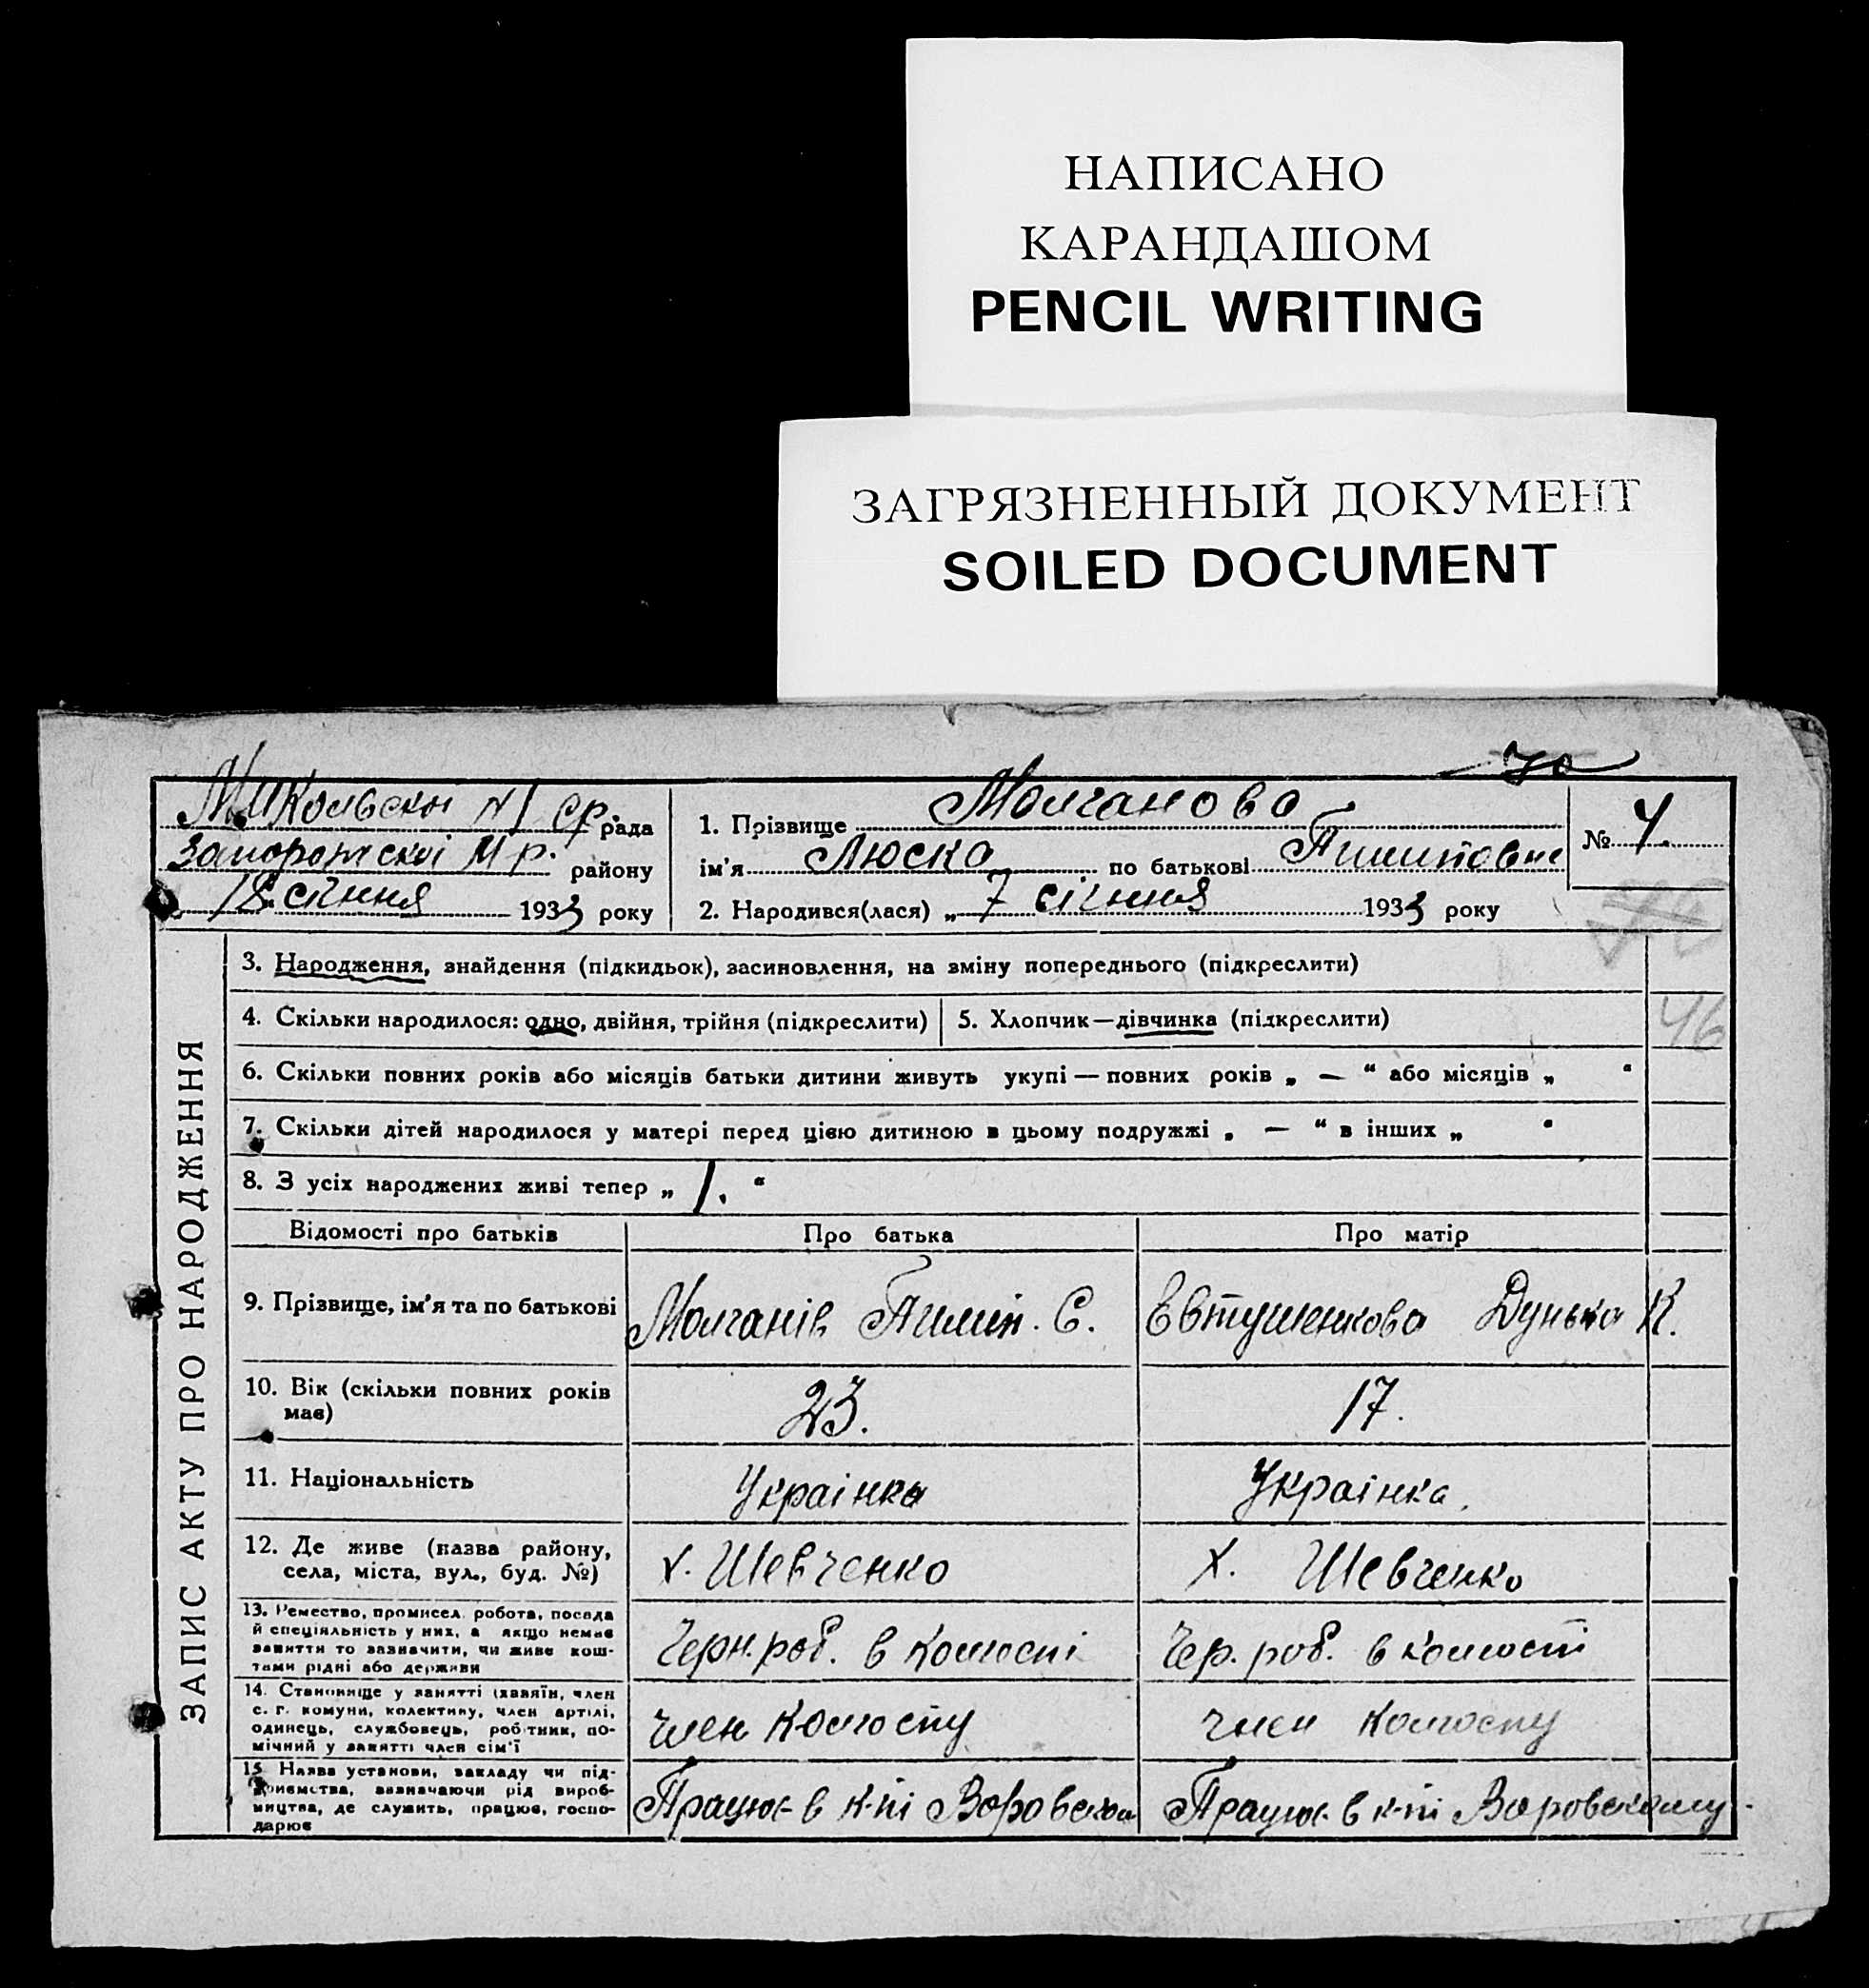 НАПИСАНО
КАРАНДАШОМ
PENCIL WRITING
ЗАГРЯЗНЕННЫЙ ДОКУМЕНТ
SOILED DOCUMENT
70
Микольскоі N1 ср. рада
Запоріжскоі М р. району
18 січння 1933 року
1. Прізвище Молчанова
ім'я Люска по батькові Пилиповне
№ 4.
2. Народився(лася) „ 7 січння 1933 року
ЗАПИС АКТУ ПРО НАРОДЖЕННЯ
3. Народження, знайдення (підкидьок), засиновлення, на зміну попереднього (підкреслити)
4. Скільки народилося: одно, двійня, трійня (підкреслити)
5. Хлопчик—дівчинка (підкреслити)
46
6. Скільки повних років або місяців батьки дитини живуть укупі — повних років „ — “ або місяців „ “
7. Скільки дітей народилося у матері перед цією дитиною в цьому подружжі „ — “ в інших „ “
8. З усіх народжених живі тепер „ 1. “
Відомості про батьків Про батька Про матір
9. Прізвище, ім'я та по батькові Молчанів Пилип. С. Евтушенкова Дунька К.
10. Вік (скільки повних років 23. 17.
має)
11. Національність Украінка Украінка.
12. Де живе (назва району, х. Шевченко х. Шевченко
села, міста, вул., буд. №)
13. Ремество, промисел, робота, посада
й спеціяльність у них, а якщо немає
заняття то зазначити, чи живе кош-
тами рідні або держави
Черн. роб. в колгоспі Чер. роб. в колгоспі
14. Становище у занятті (хазяїн, член
с. г. комуни, колективу, член артілі,
одинець, службовець, робітник, по-
мічний у занятті член сім'ї
член колгоспу член колгоспу
15. Назва установи, закладу чи під-
приємства, зазначаючи рід вироб-
ництва, де служить, працює, госпо-
дарює
Працює в к-пі Воровском Працює в к-пі Воровскому